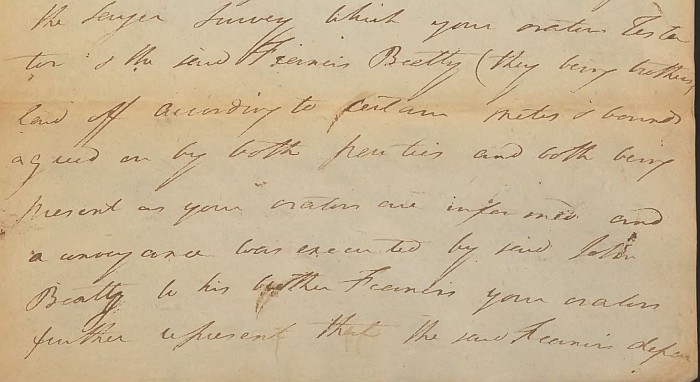 the larger survey which your orators Testa
tor & the said Francis Beatty (they being brothers)
laid off according to certain metes & bounds
agreed on by both parties and both being
present as your orators are informed and
a conveyance was executed by said John
Beatty to his brother Francis your orators
further represent that the said Francis depar